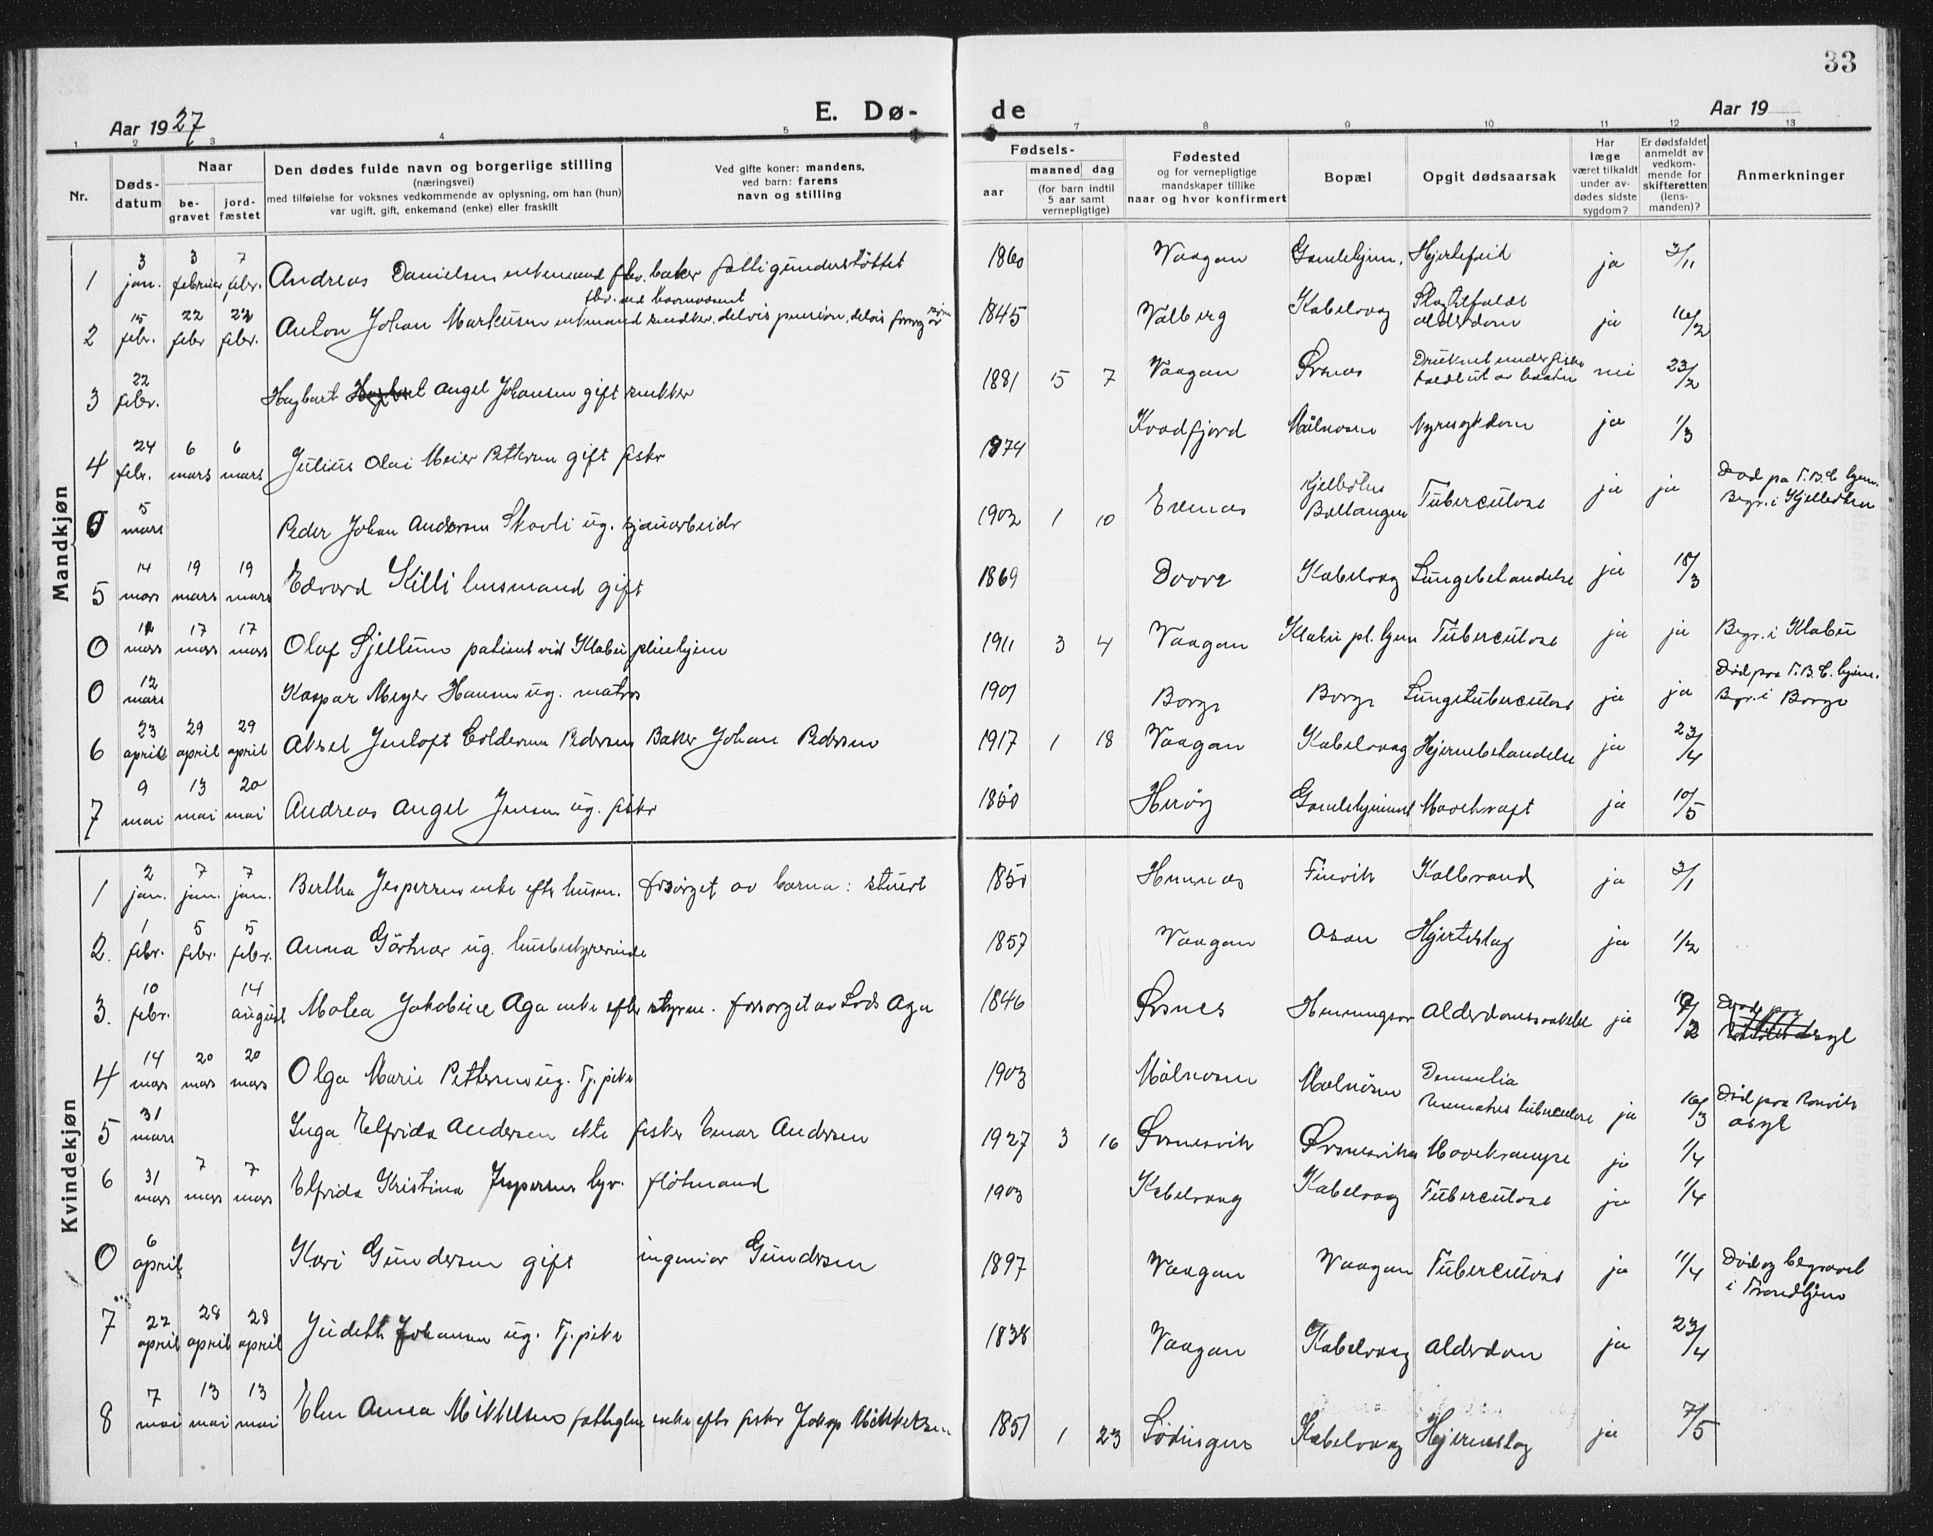 33
Aar 1927
E. Dø-
de
Aar 19
1 2 3 4 5 6 7 8 9 10 11 12 13
Nr.
Døds-
datum
Naar
be-
gravet
jord-
fæstet
Den dødes fulde navn og borgerlige stilling
(næringsvei)
med tilføielse for voksnes vedkommende av oplysning, om han (hun)
var ugift, gift, enkemand (enke) eller fraskilt
Ved gifte koner: mandens,
ved barn: farens
navn og stilling
Fødsels-
aar
maaned dag
(for barn indtil
5 aar samt
vernepligtige)
Fødested
og for vernepligtige
mandskaper tillike
naar og hvor konfirmert
Bopæl
Opgit dødsaarsak
Har
læge
været tilkaldt
under av-
dødes sidste
sygdom?
Er dødsfaldet
anmeldt av
vedkom-
mende for
skifteretten
(lens-
manden)?
Anmerkninger
Mandkjøn
1 3 jan. 3 februar 7 febr. Andreas Danielsen enkemand fhv. baker fattigunderstøttet 1860 Vaagan Gamlehjem. Hjertefeil ja 3/11
2 15 febr. 22 febr 22 febr. Anton Johan Markusen enkemand snedker. delvis pension, delvis forsørg av 1845 Valberg Kabelvaag Slagtilfælde alderdom ja 16/2
3 22 febr. Hagbart Angel Johansen gift snekker 1881 5 7 Vaagan Ørsnes Druknet under fiske faldt ut av baaten nei 23/2
4 24 febr. 6 mars 6 mars Julius Olai Meier Pettersen gift fisker 1874 Kvadfjord Mølnosen Nyresykdom ja 1/3
0 5 mars Peder Johan Andersen Skovli ug. 1902 1 10 Evenes Kjelledhus Ballangen Tuberculose ja ja Død paa T.B.C. hjem. Begr. i
5 14 mars 19 mars 19 mars Edvard Killi husmand gift 1869 Dovre Kabelvaag Lungebetændelse ja 18/3
0 12 mars 17 mars 17 mars Olaf Sjellum patient ved Klæbu pleiehjem 1911 3 4 Vaagan Klæbu pl. hjem Tuberculose ja ja Begr. i Klæbu
0 12 mars Kaspar Meyer Hansen ug. matros 1901 Borge Borge Lungetuberculose ja ja Død paa T.B.C. hjem. Begr. i Borge
6 23 april 29 april 29 april Aksel Jentoft Coldevin Pedersen Baker Johan Pedersen 1917 1 18 Vaagan Kabelvaag Hjernebetændelse ja 23/4
7 9 mai 13 mai 20 mai Andreas Angel Jensen ug. fisker 1850 Herøy Gamlehjemmet Mavekræft ja 10/5
Kvindekjøn
1 2 jan. 7 jan. 7 jan. Bertha Jespersen enke efter husm. forsørget av barna: stuert 1850 Hemnes Finvik Kolbrand ja 3/1
2. 1 febr. 5 febr. 5 febr. Anna Görtner ug. husbestyrerinde 1857 Vaagan Osan Hjerteslag ja 1/2
3. 10 febr. 14 august Malea Jakobine Aga enke efter styrm. forsørget av Lods Aga 1846 Ørsnes Henningsvær Alderdomssvakelse ja /2 asyl
4 14 mars 20 mars 20 mars Olga Marie Pettersen ug. Tj. pike 1903 Mølnosen Mølnosen Dementia tuberculose ja 16/3 Død paa Rønvik asyl
5 31 mars Inga Elfrida Andersen ekte fisker Einar Andersen 1927 3 16 Ørsnesvik Ørsnesvika Mavekrampe ja 1/4
6 31 mars 7 mars 7 mars Elfrida Kristina Jespersen hv. fløtmand 1903 Kabelvaag Kabelvaag Tuberculose ja 1/4
0 6 april Kari Gundersen gift ingeniør Gundersen 1897 Vaagan Vaagan Tuberculose ja 11/4 Død og begravet i Trondhjem
7 22 april 28 april 28 april Judeth Johansen ug. Tj. pike 1838 Vaagan Kabelvaag Alderdom ja 23/4
8 7 mai 13 mai 13 mai Elen Anna Mikkelsen fattiglem enke efter fisker Jakop Mikkelsen 1851 1 23 Lødingen Kabelvaag Hjerneslag ja 7/5